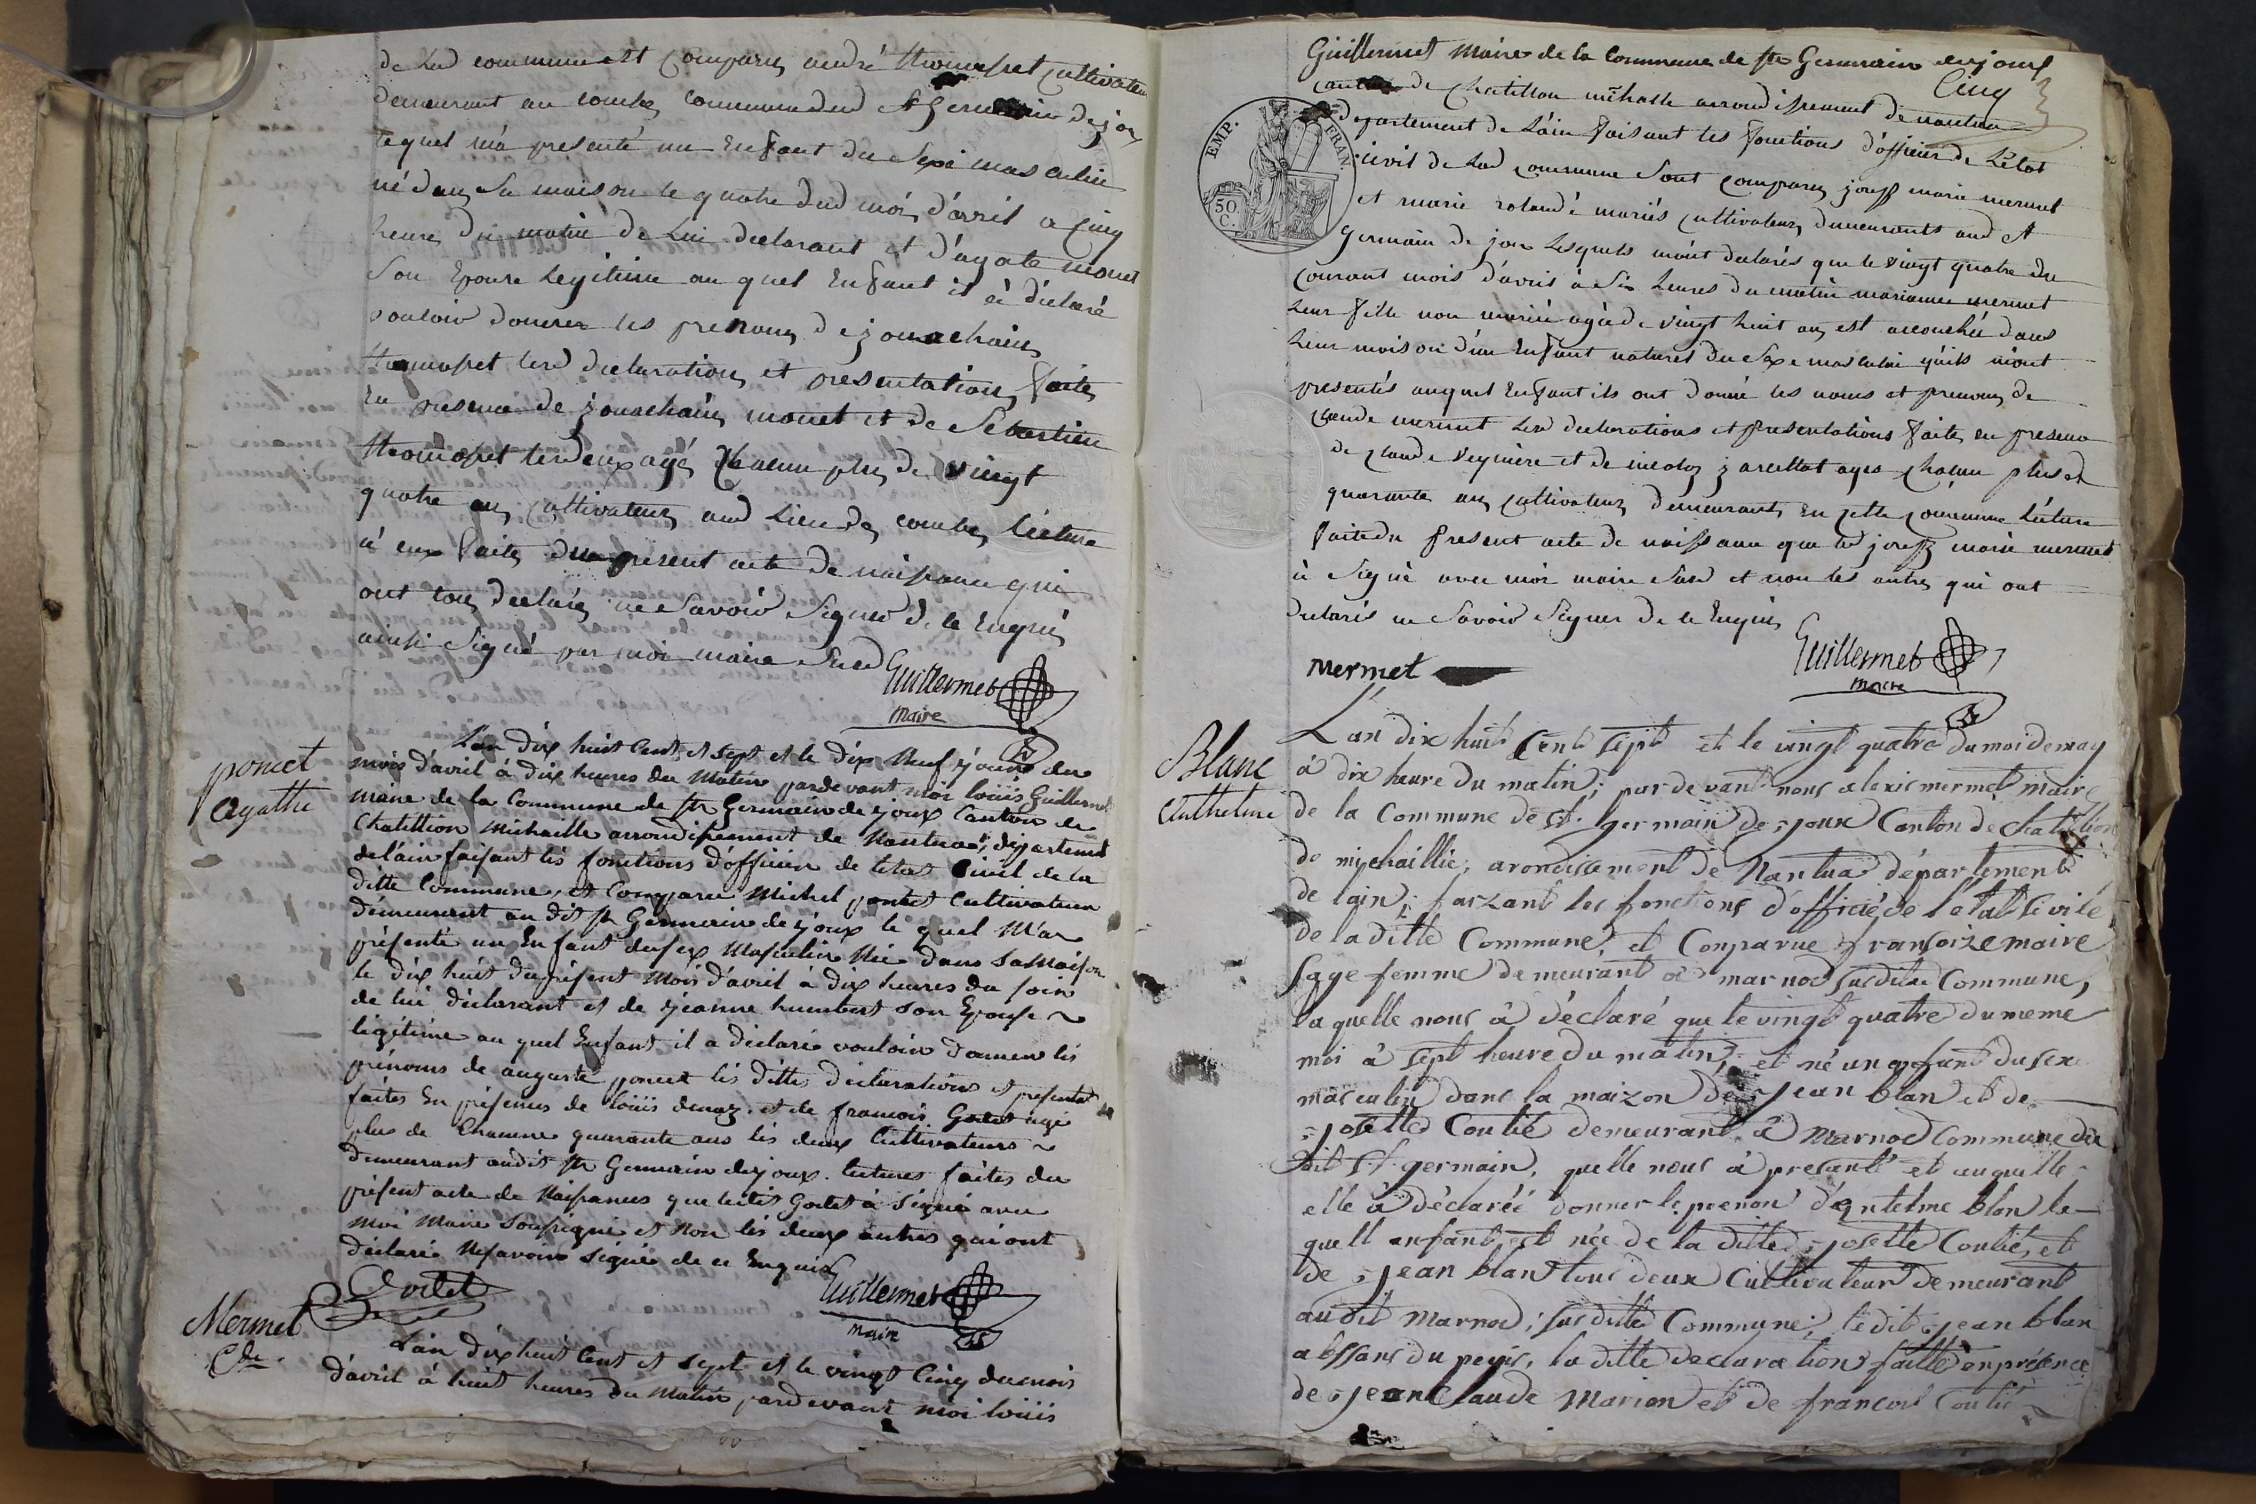 de lad commune est comparu andré thomasset cultivateur
demeurant au combes commune dud St Germain de joux
lequel m'a presenté un Enfant du Sexe masculin
né dans Sa maison le quatre dud mois d'avril a cinq
heures du matin de Lui declarant et d'agate monet
Son Epouse Legitime au quel Enfant il à déclaré
vouloir donner les prenoms de jouachain
thomasset lesd declaration et presentation faites
En presence de jouachain monet et de Sebastien
thomasset lesdeux agés chacun plus de vingt
quatre ans cultivateurs aud Lieu des combes Lecture
à eux faite du present acte de naissance qui
ont tous declarés ne Savoir Signer de ce Enquis
ainsi Signé par moi maire Susd
Guillermet
maire
poncet
agathe
L'an dix huit Cent et sept et le dix Neuf jours du
mois d'avril à dix heures du Matin pardevant moi loüis Guillermet
maire de la Commune de St Germain de joux Canton de
Chatillion Michaille arrondissement de Nantua, département
de l'ain faisant lés fonctions d'officier de létat Civil de la
ditte Commune, et Comparu Michel poncet Cultivateur
démeurant au dit St Germain de joux le quel M'a
présenté un Enfant du sex Masculin Née dans Sa Maison
le dix huit du présent Mois d'avril à dix heures du soir
de lui déclarant et de jeanne humbert son Epouse
légitime au quel Enfant il a déclaré vouloir donner lés
prénoms de auguste poncet lés dittes déclarations et présentat
faites En présence de loüis et de francois Godet agé
plus de Chacune quarante ans lés deux Cultivateurs
demeurant audit St Germain de joux. lectures faites du
présent acte de Naissances que ledit Godet à Signé avec
Moi Maire Soussigné et Non lés deux autres qui ont
déclaré Ne savoir signér de ce Enquis
Godet
Guillermet
maire
Mermet
Cde
L'an dix huit Cent et sept et le vingt Cinq du mois
d'avril à huit heures du Matin pardevant moi loüis
Guillermet Maire de la Commune de St Germain de joux
Cinq
canton de chatillon michalle arrondissement de nantua
EMP. FRAN.
50. C.
departement de L'ain faisant les fonctions d'officier de L'état
civil de lad commune Sont comparu joseph marie mermet
et marie rolandé mariés cultivateurs demeurants aud St
germain de joux Lesquels m'ont declarés que le vingt quatre du
courant mois d'avril à Six heures du matin marianne mermet
Leur fille non mariée agée de vingt huit ans est accouchée dans
Leur maison d'un Enfant naturel du Sexe masculin qu'ils m'ont
presentés auquel Enfant ils ont donné les noms et prenoms de
claude mermet Lesd declarations et presentations faites en presence
de claude et de nicolas agés chacun plus de
quarante ans cultivateurs demeurants en cette commune Lecture
faite du present acte de naissance que led joseph marie mermet
à Signé avec moi maire Susd et non les autres qui ont
declarés ne Savoir Signer de ce Enquis
mermet
Guillermet
maire
Blanc
Anthelme
L'an dix huit Cent sept et le vingt quatre du moi de may
à dix heure du matin; par devant nous alexis mermet maire
de la Commune de St. germain de joux Canton de Chatillion
de mychaillie; arondissement de Nantua département
de l'ain; faizant les fonctions d'officié de l'etat Civile
de la ditte Commune, et Comparue fransoize maire
sage femme demeurant à marnod susditte Commune,
la quelle nous à déclaré que le vingt quatre du meme
moi à sept heure du matin, et né un enfant du sexe
masculin dans la maizon de jean blan et de
josette Coutié demeurant à Marnod Commune du
dit St. germain, quelle nous à presanté et auquelle
elle à déclaréé donner le prenon d'antelme blan le
quell enfant et née de la ditte josette Coutié, et
de jean blan tous deux Cultivateur demeurant
audit Marnod; susditte Commune; ledit jean blan
abssans du peyis, la ditte declaration faitte en présence
de jean Claude Marion et de francois Coutié